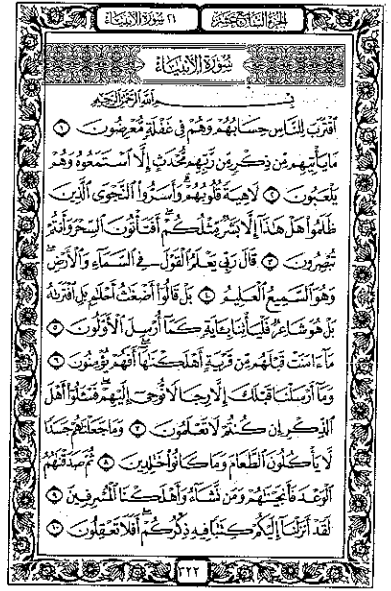 الجزء السابع عشر
٢١ سورة الأنبياء
سُورَةُ الأَنبِيَاءِ
بِسْمِ اللَّهِ الرَّحْمَٰنِ الرَّحِيمِ
ٱقْتَرَبَ لِلنَّاسِ حِسَابُهُمْ وَهُمْ فِي غَفْلَةٍ مُّعْرِضُونَ ١
مَا يَأْتِيهِم مِّن ذِكْرٍ مِّن رَّبِّهِم مُّحْدَثٍ إِلَّا ٱسْتَمَعُوهُ وَهُمْ
يَلْعَبُونَ ٢ لَاهِيَةً قُلُوبُهُمْ وَأَسَرُّوا۟ ٱلنَّجْوَى ٱلَّذِينَ
ظَلَمُوا۟ هَلْ هَٰذَا إِلَّا بَشَرٌ مِّثْلُكُمْ أَفَتَأْتُونَ ٱلسِّحْرَ وَأَنتُمْ
تُبْصِرُونَ ٣ قَالَ رَبِّي يَعْلَمُ ٱلْقَوْلَ فِي ٱلسَّمَاءِ وَٱلْأَرْضِ
وَهُوَ ٱلسَّمِيعُ ٱلْعَلِيمُ ٤ بَلْ قَالُوا۟ أَضْغَٰثُ أَحْلَٰمٍ بَلِ ٱفْتَرَىٰهُ
بَلْ هُوَ شَاعِرٌ فَلْيَأْتِنَا بِـَٔايَةٍ كَمَا أُرْسِلَ ٱلْأَوَّلُونَ ٥
مَا ءَامَنَتْ قَبْلَهُم مِّن قَرْيَةٍ أَهْلَكْنَٰهَا أَفَهُمْ يُؤْمِنُونَ ٦
وَمَا أَرْسَلْنَا قَبْلَكَ إِلَّا رِجَالًا نُّوحِي إِلَيْهِمْ فَسْـَٔلُوا۟ أَهْلَ
ٱلذِّكْرِ إِن كُنتُمْ لَا تَعْلَمُونَ ٧ وَمَا جَعَلْنَٰهُمْ جَسَدًا
لَّا يَأْكُلُونَ ٱلطَّعَامَ وَمَا كَانُوا۟ خَٰلِدِينَ ٨ ثُمَّ صَدَقْنَٰهُمُ
ٱلْوَعْدَ فَأَنجَيْنَٰهُمْ وَمَن نَّشَاءُ وَأَهْلَكْنَا ٱلْمُسْرِفِينَ ٩
لَقَدْ أَنزَلْنَا إِلَيْكُمْ كِتَٰبًا فِيهِ ذِكْرُكُمْ أَفَلَا تَعْقِلُونَ ١٠
٣٢٢